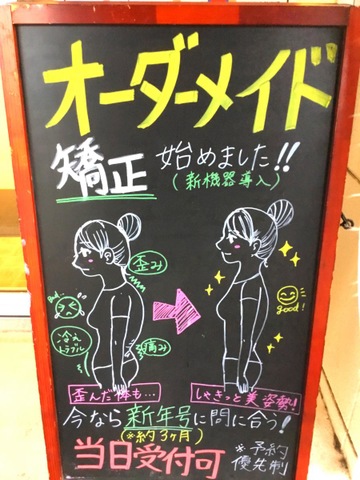 オーダーメイド
矯正 始めました!!
(新機器導入)
歪み
Bad..
冷え
トラブル
痛み
good!
歪んだ体も…
しゃきっと美姿勢!
今なら新年号に間に合う!
(※約3ヶ月)
当日受付可
※予約
優先制